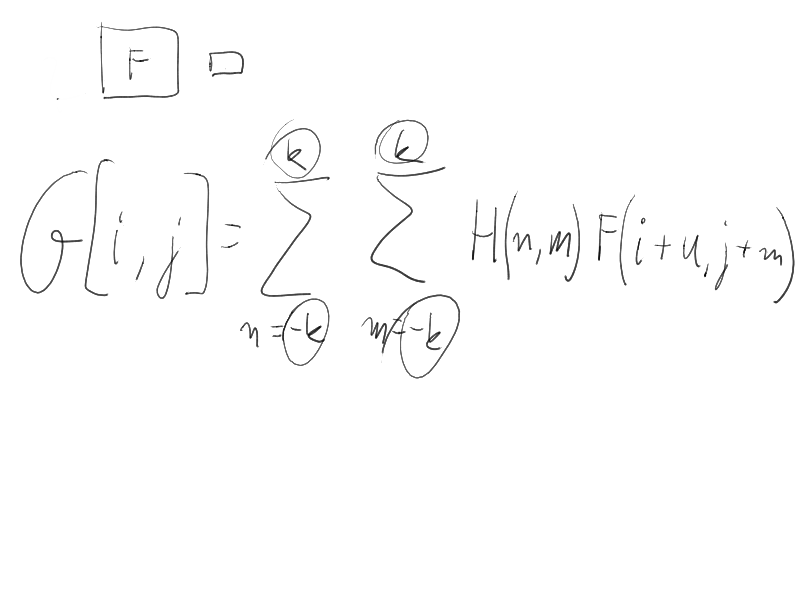 F
G[i, j] = ∑_{n=-k}^{k} ∑_{m=-k}^{k} H(n,m) F(i+u, j+m)